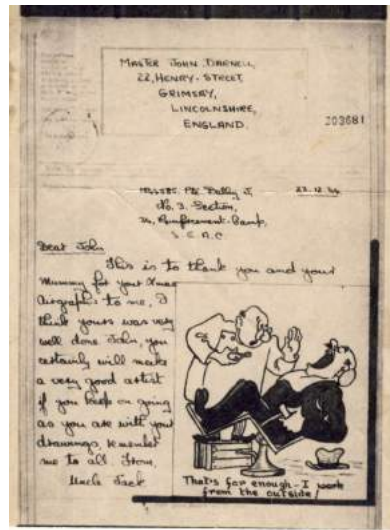 MASTER JOHN DARNELL,
22, HENRY-STREET,
GRIMSBY,
LINCOLNSHIRE,
ENGLAND.
203681
Pte Dolby J.
23.12.44
No. 3. Section,
Reinforcement Camp,
S.E.A.C
Dear John
This is to thank you and your
Mummy for your Xmas
Airgraphs to me, I
think yours was very
well done John, you
certainly will make
a very good artist
if you keep on going
as you are with your
drawings, remember
me to all. From,
Uncle Jack
That's far enough - I work
from the outside!